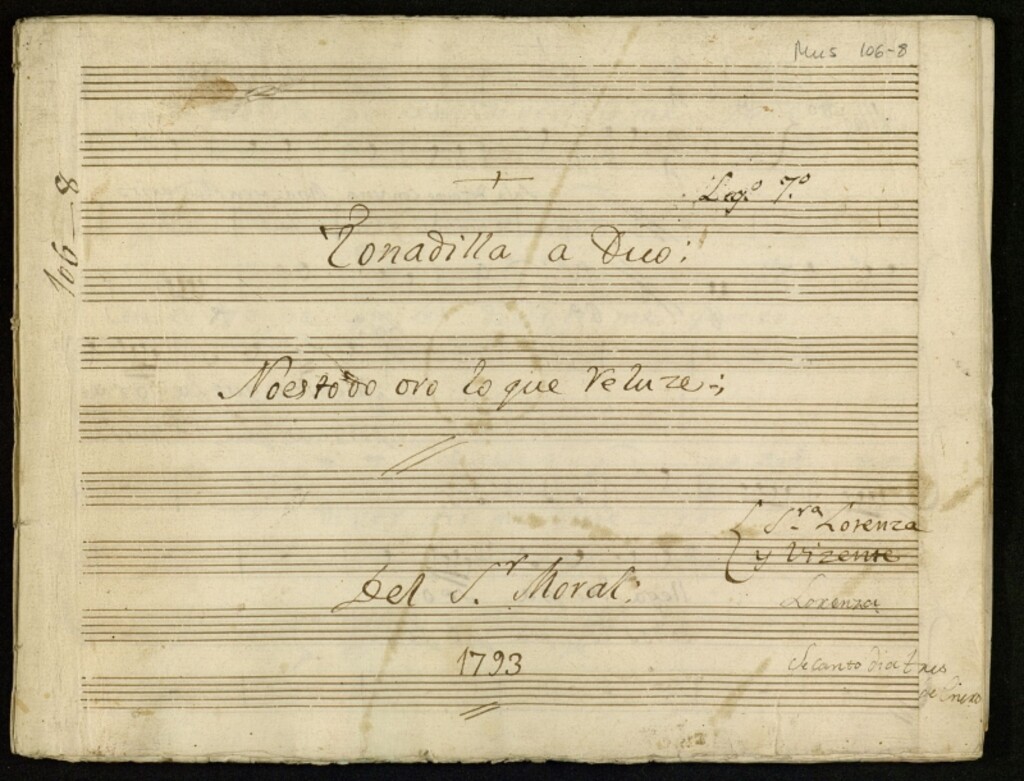 Mus 106-8
106-8
Leg.º 7.º
Tonadilla a Duo:
Noestodo oro lo que reluze-;
S.ra Lorenza
y Vizente
Del S.r Moral:
Lorenza
1793
Secanto dia tres
de Enero